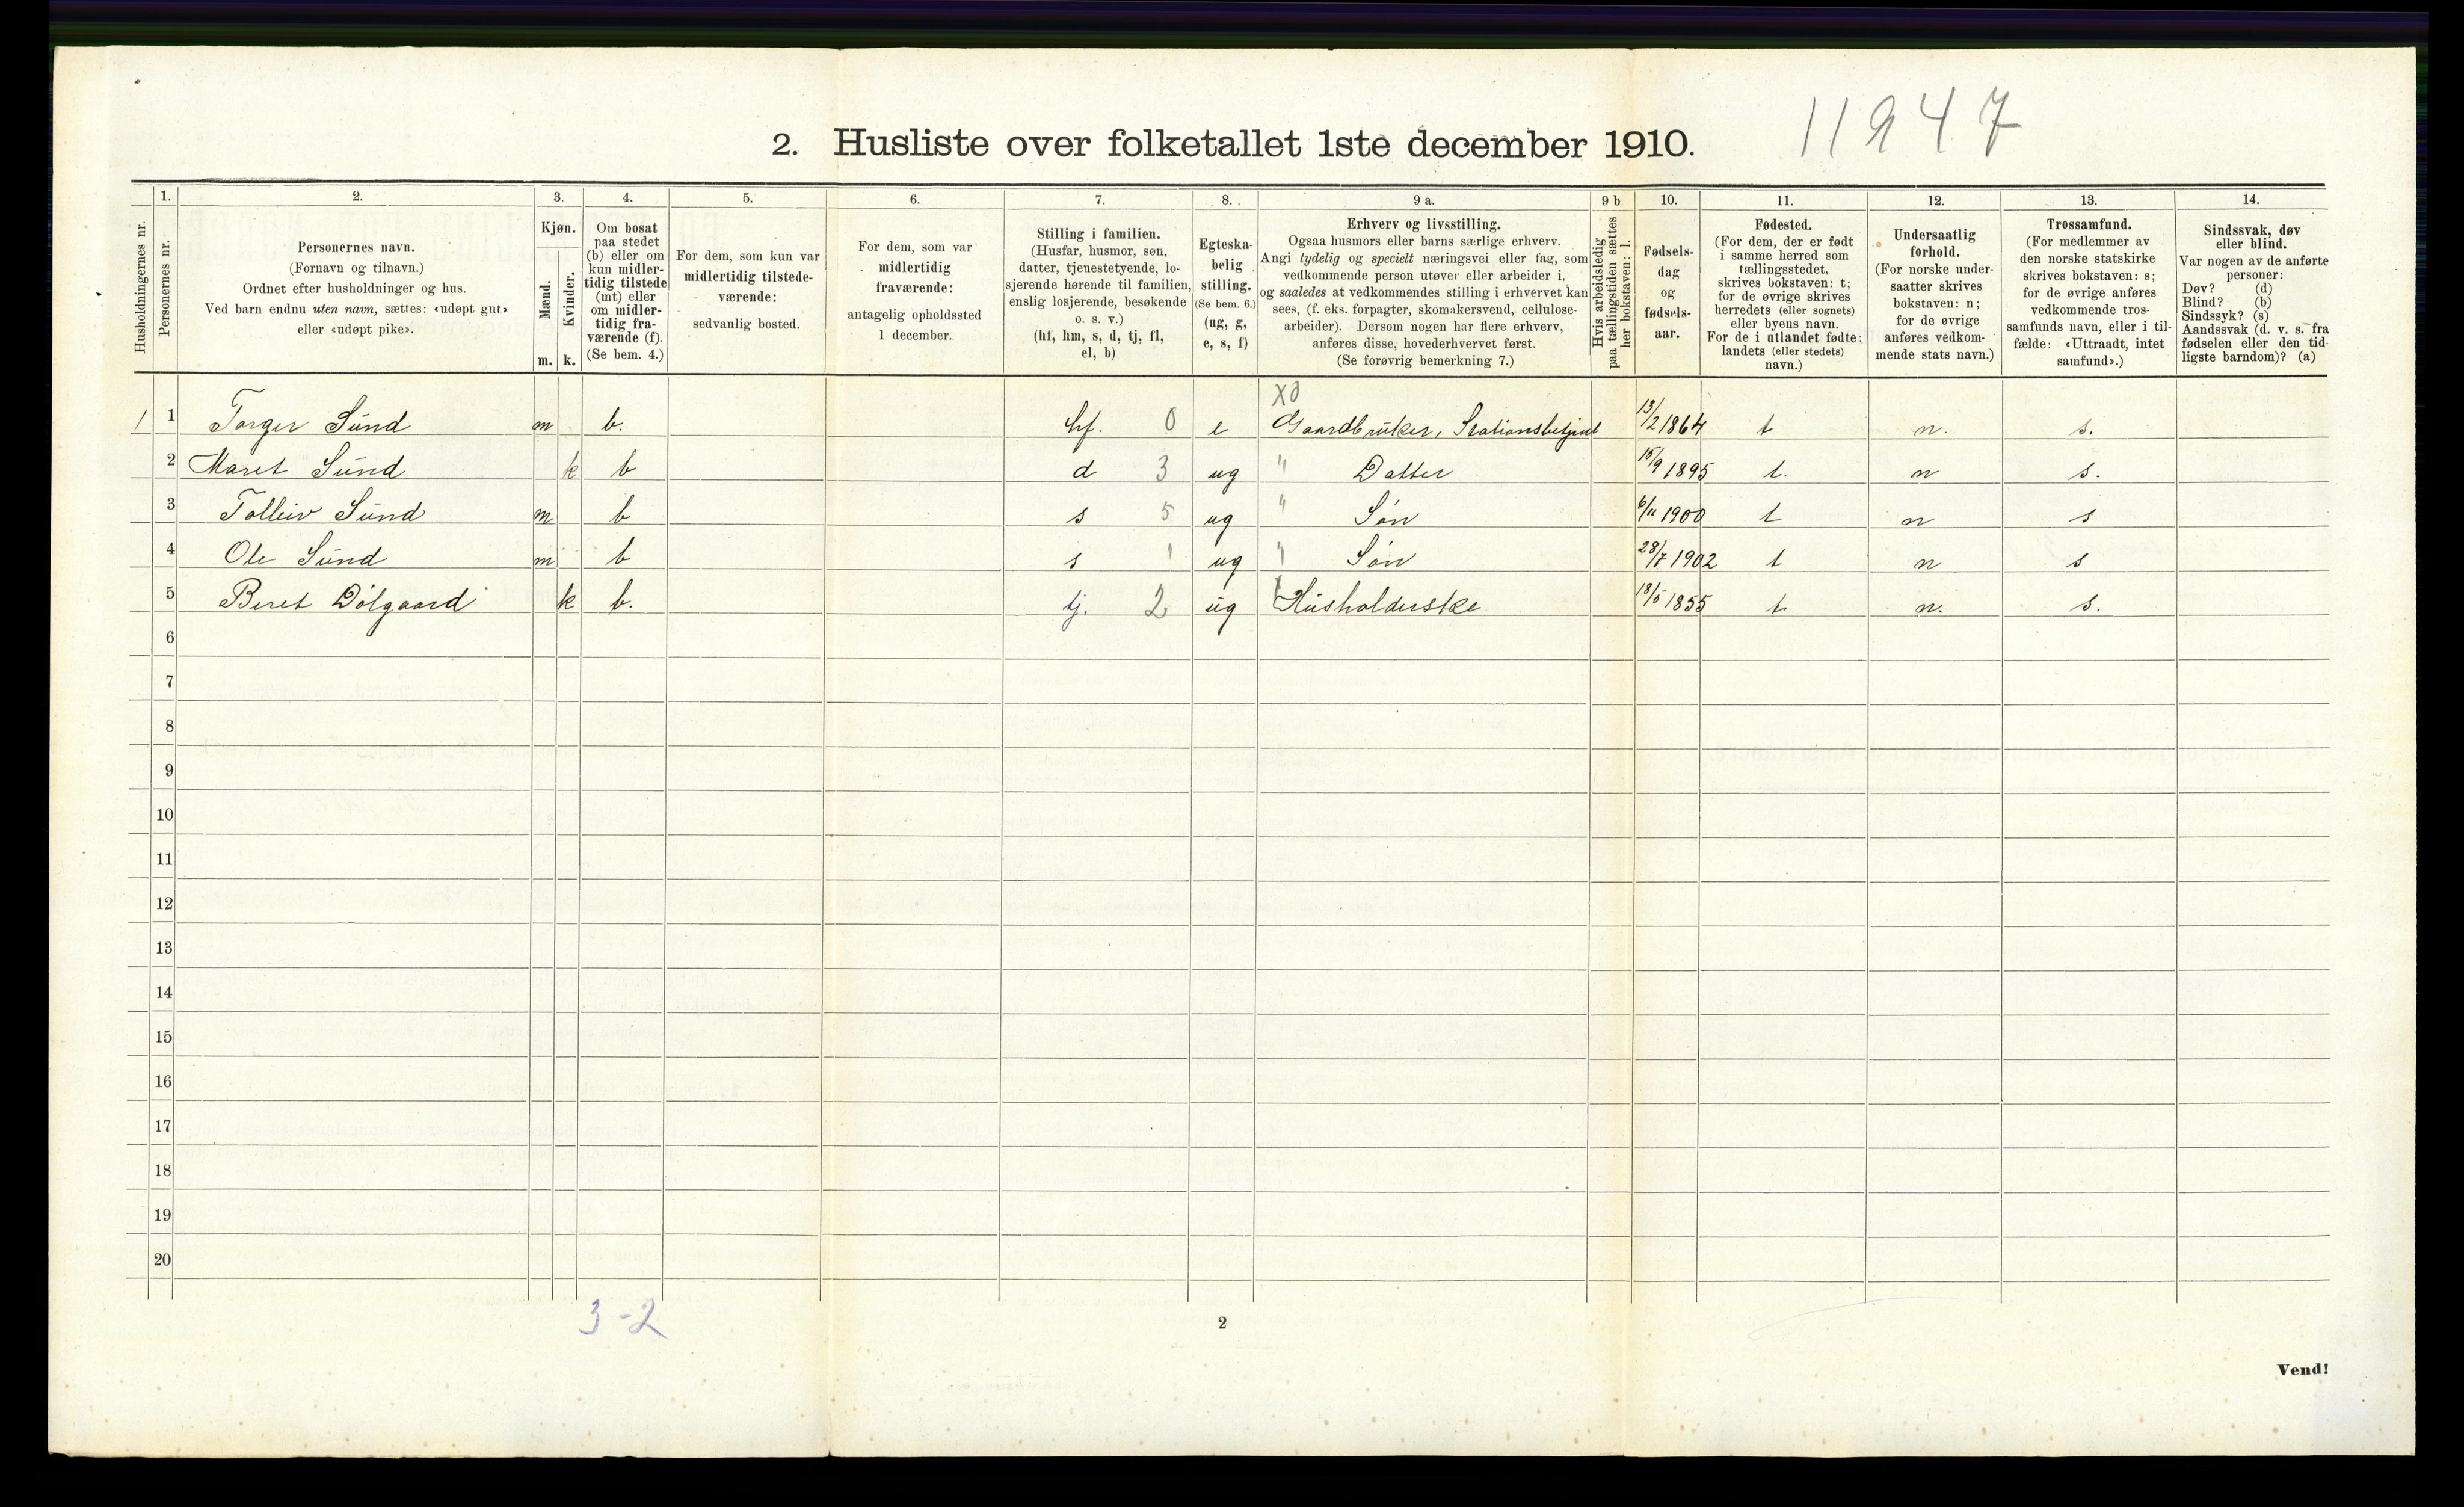 11947
2. Husliste over folketallet 1ste december 1910.
Husholdningernes nr.
1.
Personernes nr.
2.
Personernes navn.
(Fornavn og tilnavn.)
Ordnet efter husholdninger og hus.
Ved barn endnu uten navn, sættes: «udøpt gut»
eller «udøpt pike».
3.
Kjøn.
Mænd.
Kvinder.
m. k.
4.
Om bosat
paa stedet
(b) eller om
kun midler-
tidig tilstede
(mt) eller
om midler-
tidig fra-
værende (f).
(Se bem. 4.)
5.
For dem, som kun var
midlertidig tilstede-
værende:
sedvanlig bosted.
6.
For dem, som var
midlertidig
fraværende:
antagelig opholdssted
1 december.
7.
Stilling i familien.
(Husfar, husmor, søn,
datter, tjenestetyende, lo-
sjerende hørende til familien,
enslig losjerende, besøkende
o. s. v.)
(hf, hm, s, d, tj, fl,
el, b)
8.
Egteska-
belig
stilling.
(Se bem. 6.)
(ug, g,
e, s, f)
9 a.
Erhverv og livsstilling.
Ogsaa husmors eller barns særlige erhverv.
Angi tydelig og specielt næringsvei eller fag, som
vedkommende person utøver eller arbeider i,
og saaledes at vedkommendes stilling i erhvervet kan
sees, (f. eks. forpagter, skomakersvend, cellulose-
arbeider). Dersom nogen har flere erhverv,
anføres disse, hovederhvervet først.
(Se forøvrig bemerkning 7.)
9 b
Hvis arbeidsledig
paa tællingstiden sættes
her bokstaven: l.
10.
Fødsels-
dag
og
fødsels-
aar.
11.
Fødested.
(For dem, der er født
i samme herred som
tællingsstedet,
skrives bokstaven: t;
for de øvrige skrives
herredets (eller sognets)
eller byens navn.
For de i utlandet fødte:
landets (eller stedets)
navn.)
12.
Undersaatlig
forhold.
(For norske under-
saatter skrives
bokstaven: n;
for de øvrige
anføres vedkom-
mende stats navn.)
13.
Trossamfund.
(For medlemmer av
den norske statskirke
skrives bokstaven: s;
for de øvrige anføres
vedkommende tros-
samfunds navn, eller i til-
fælde: «Uttraadt, intet
samfund».)
14.
Sindssvak, døv
eller blind.
Var nogen av de anførte
personer:
Døv? (d)
Blind? (b)
Sindssyk? (s)
Aandssvak (d. v. s. fra
fødselen eller den tid-
ligste barndom)? (a)
X0
1 1 Torger Sund m b. hf. 0 e Gaardbruker, Stationsbetjent 13/2 1864 t n. s.
2 Maret Sund k b d 3 ug " Datter 15/9 1895 t. n s.
3 Tolleiv Sund m b s 5 ug " Søn 6/11 1900 t n s
4 Ole Sund m b s 1 ug " Søn 28/7 1902 t n s
5 Beret Dölgaard k b. tj. 2 ug Husholderske 18/5 1855 t n. s.
6
7
8
9
10
11
12
13
14
15
16
17
18
19
20
3-2
2
Vend!